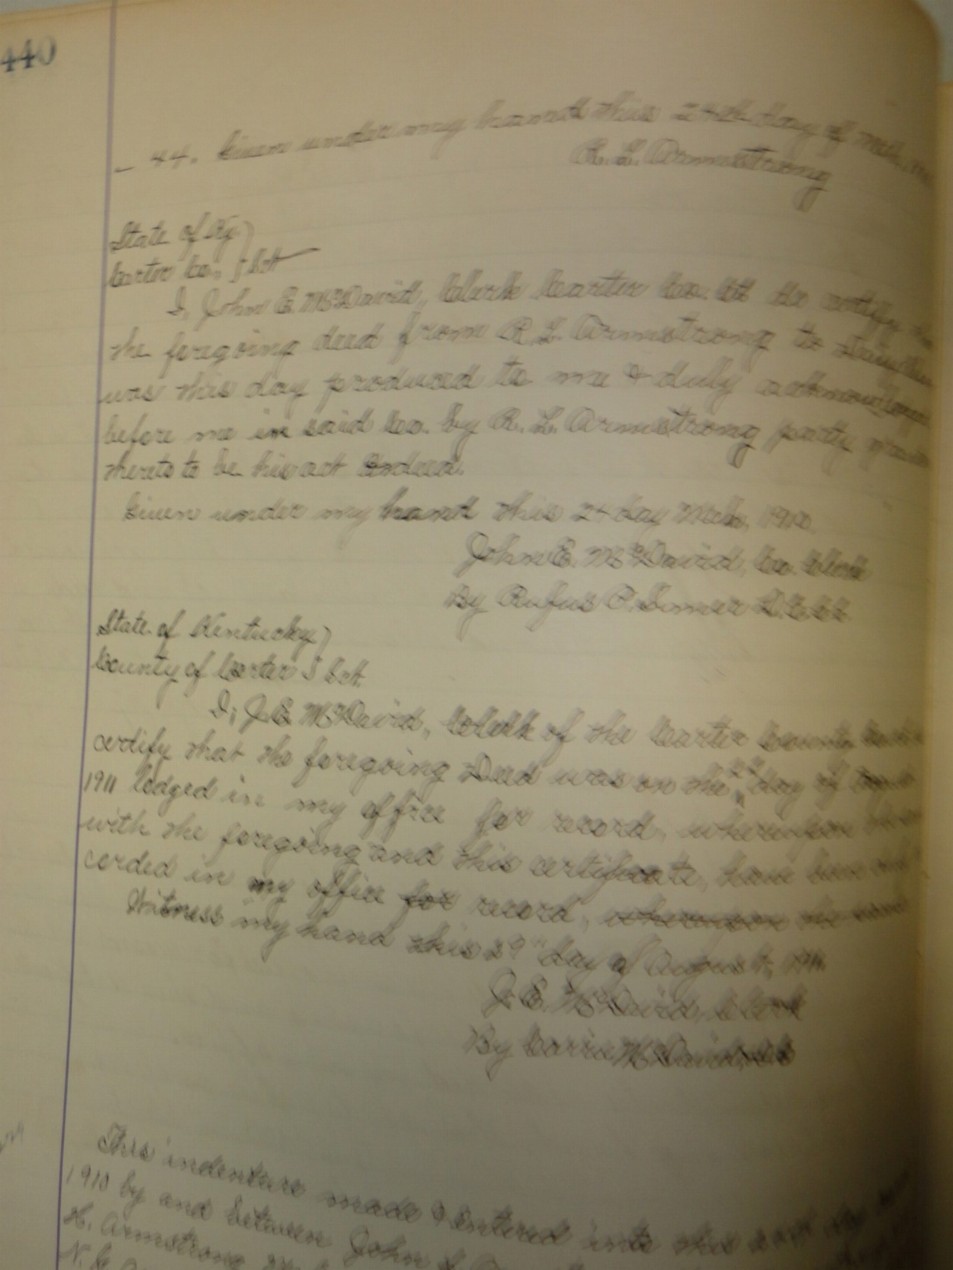 440
44. Given under my hand this 24th day of Mch,
R. L. Armstrong
State of Ky
Carter Co. Sct
I, John E. McDavid, Clerk Carter Co. Ct do certify
the foregoing deed from R. L. Armstrong to
was this day produced to me & duly
before me in said Co. by R. L. Armstrong party
thereto to be his act and deed.
Given under my hand this 24 day Mch, 1910
John E. McDavid, Co. Clerk
By Rufus P.
State of Kentucky
County of Carter Sct.
I, J. E. McDavid, Clerk of the Carter County
certify that the foregoing Deed was on the day of
1911 lodged in my office for record, whereupon the
with the foregoing and this certificate, have been
corded in my office for record, whereupon the same
Witness my hand this 29" day of August, 1911
J. E. McDavid, Clerk
By Carrie McDavid,
This indenture made & entered into this day
1910 by and between John
H. Armstrong